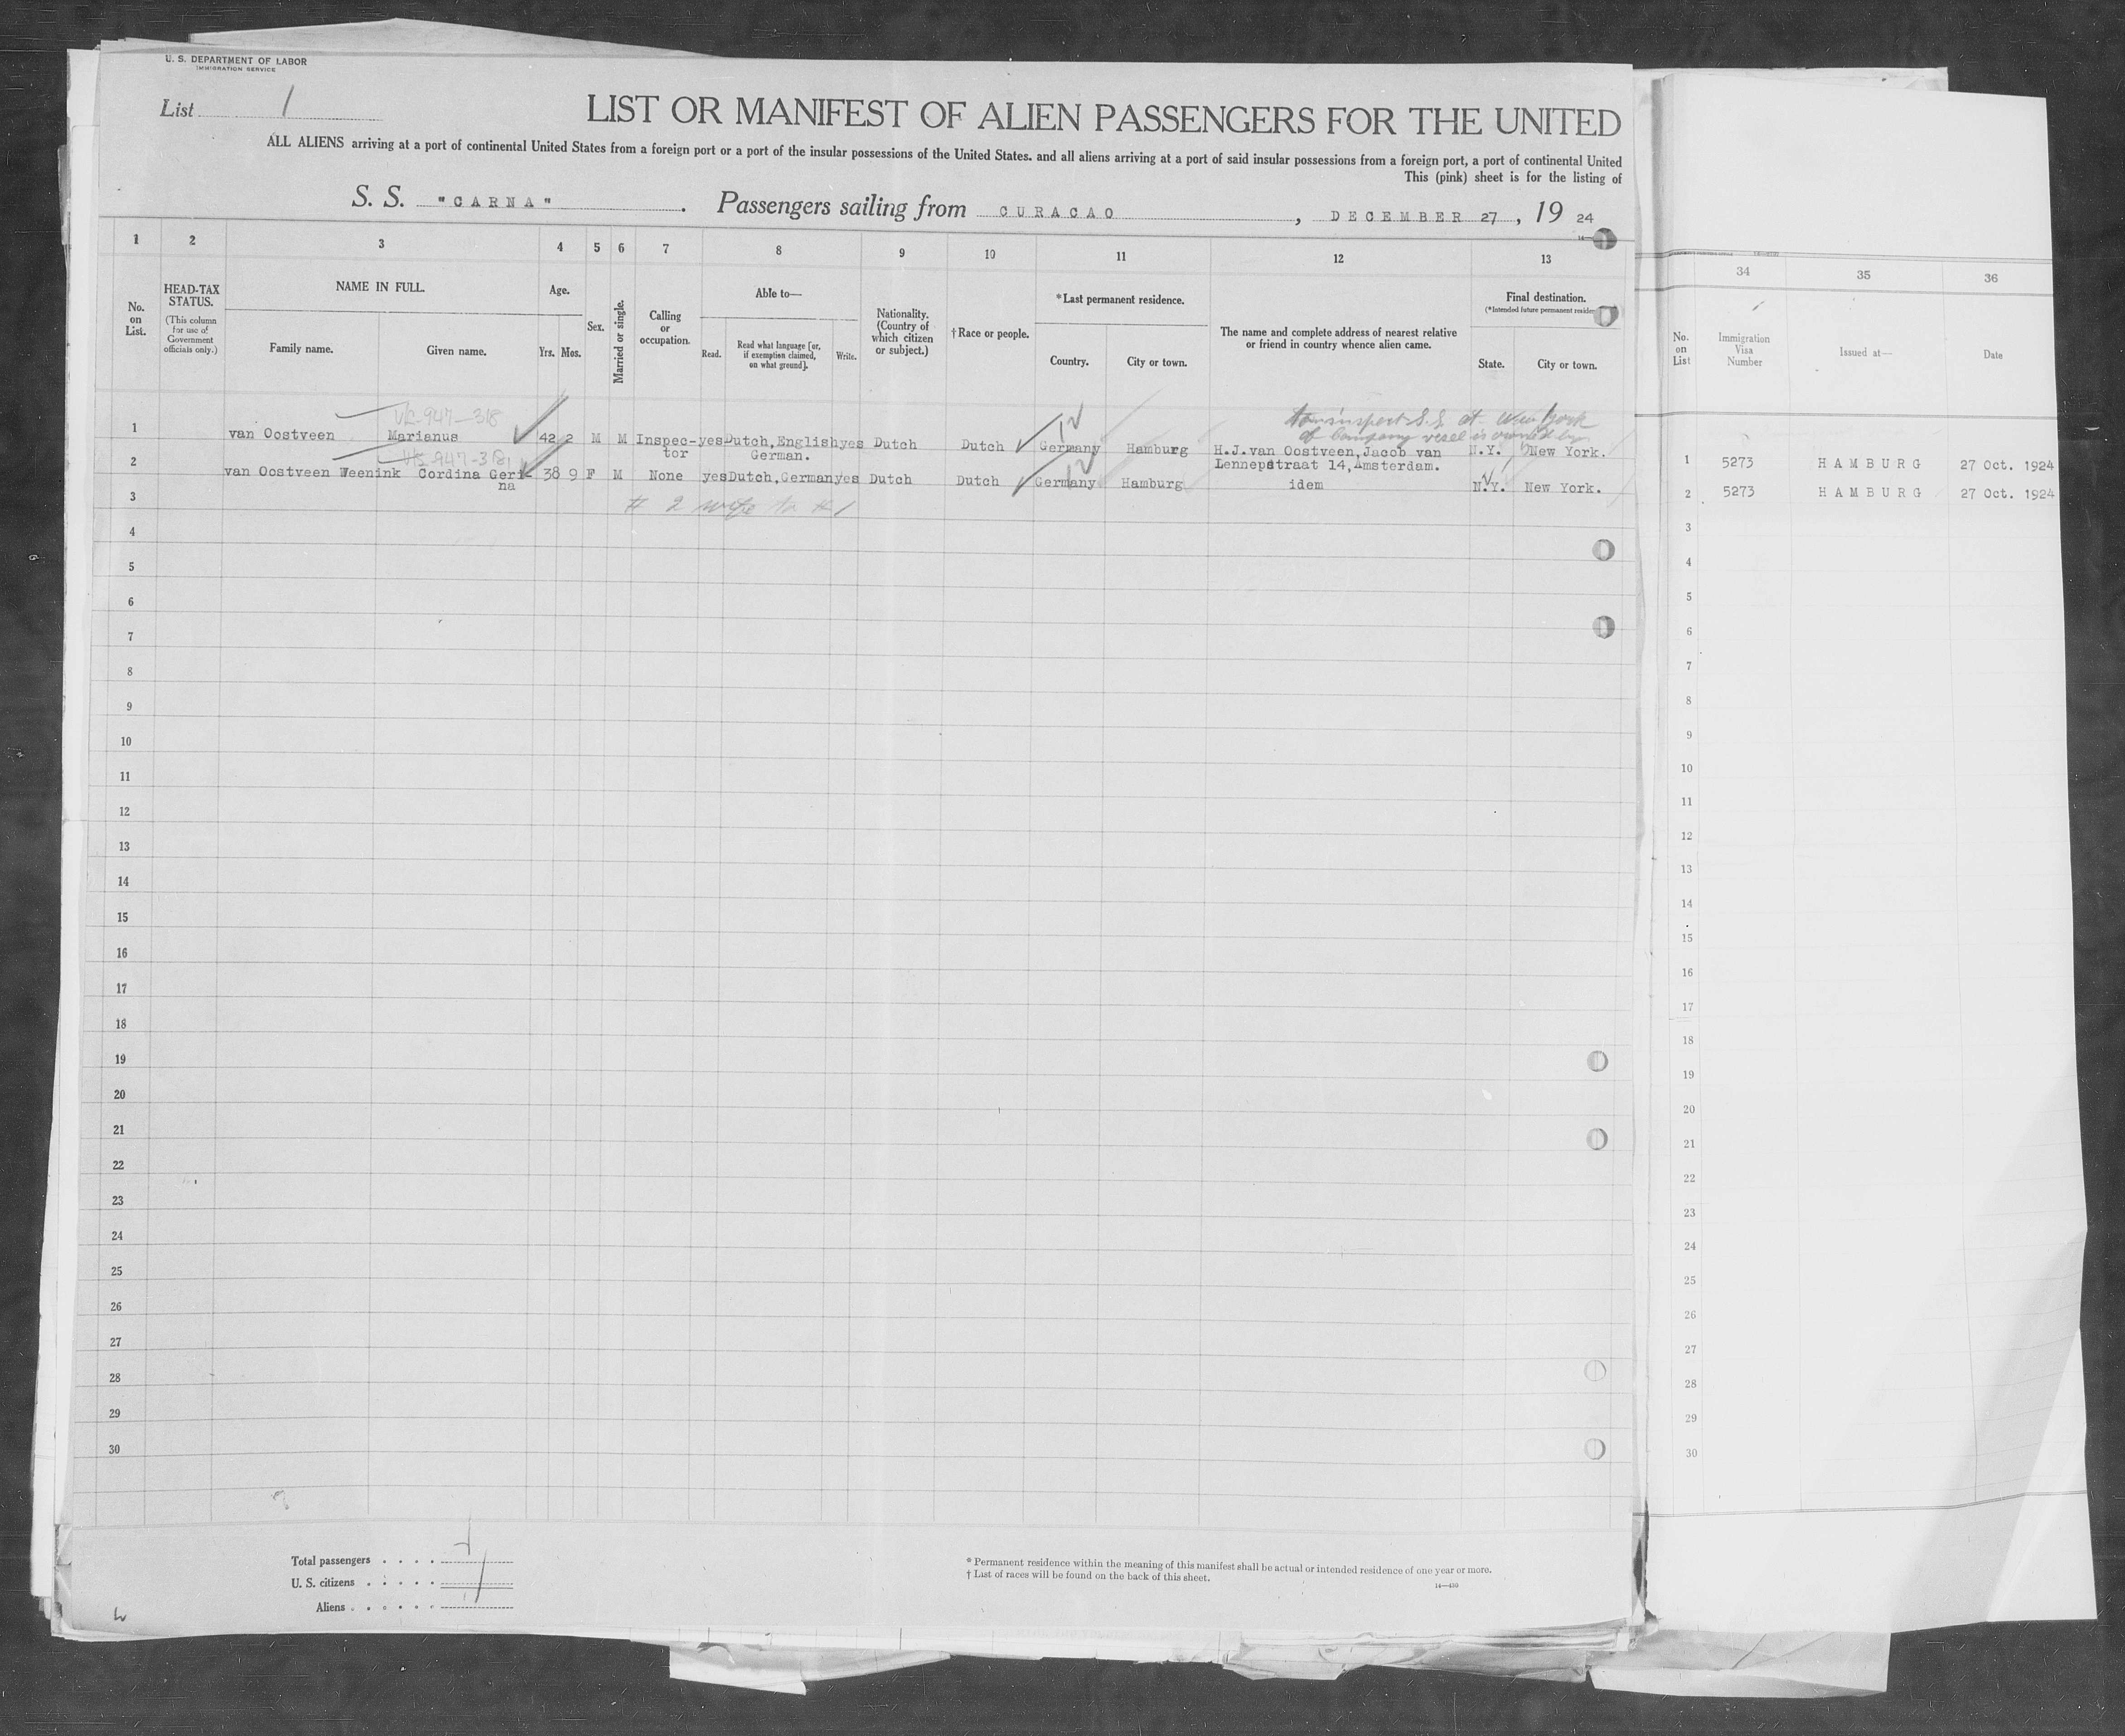 U. S. DEPARTMENT OF LABOR
IMMIGRATION SERVICE
List 1
LIST OR MANIFEST OF ALIEN PASSENGERS FOR THE UNITED
ALL ALIENS arriving at a port of continental United States from a foreign port or a port of the insular possessions of the United States. and all aliens arriving at a port of said insular possessions from a foreign port, a port of continental United
This (pink) sheet is for the listing of
S. S. "CARNA" . Passengers sailing from CURACAO , DECEMBER 27 , 19 24
1 2 3 4 5 6 7 8 9 10 11 12 13
No. on List.
HEAD-TAX STATUS.
(This column for use of Government officials only.)
NAME IN FULL.
Family name. Given name.
Age.
Yrs. Mos.
Sex.
Married or single.
Calling or occupation.
Able to—
Read. Read what language [or, if exemption claimed, on what ground]. Write.
Nationality. (Country of which citizen or subject.)
†Race or people.
*Last permanent residence.
Country. City or town.
The name and complete address of nearest relative or friend in country whence alien came.
Final destination.
(*Intended future permanent
State. City or town.
to inspect S.S. at New York
of Company vesel is owned by
947-318
1 van Oostveen Marianus 42 2 M M Inspec-yesDutch,Englishyes Dutch Dutch Germany Hamburg H.J.van Oostveen,Jacob van N.Y. New York.
tor German. Lennepstraat 14,Amsterdam.
947-318
2 van Oostveen Weenink Cordina Geri 38 9 F M None yesDutch,Germanyes Dutch Dutch Germany Hamburg idem N.Y. New York.
na
3 # 2 wife to #1
4
5
6
7
8
9
10
11
12
13
14
15
16
17
18
19
20
21
22
23
24
25
26
27
28
29
30
Total passengers
U. S. citizens
Aliens
* Permanent residence within the meaning of this manifest shall be actual or intended residence of one year or more.
† List of races will be found on the back of this sheet.
14—430
34 35 36
No. on List
Immigration Visa Number
Issued at—
Date
1 5273 HAMBURG 27 Oct. 1924
2 5273 HAMBURG 27 Oct. 1924
3
4
5
6
7
8
9
10
11
12
13
14
15
16
17
18
19
20
21
22
23
24
25
26
27
28
29
30